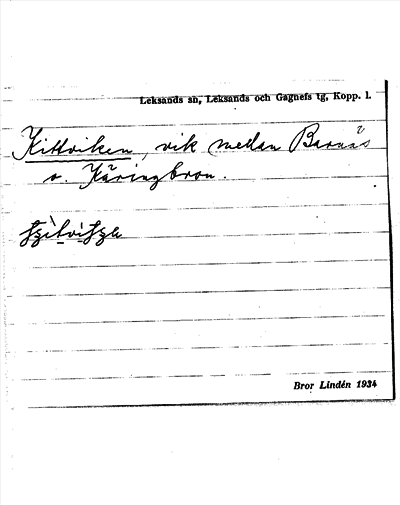 Leksands sn, Leksands och Gagnefs tg, Kopp. l.
Kittviken, vik mellan Barnäs
o. Käringbron.
Bror Lindén 1934